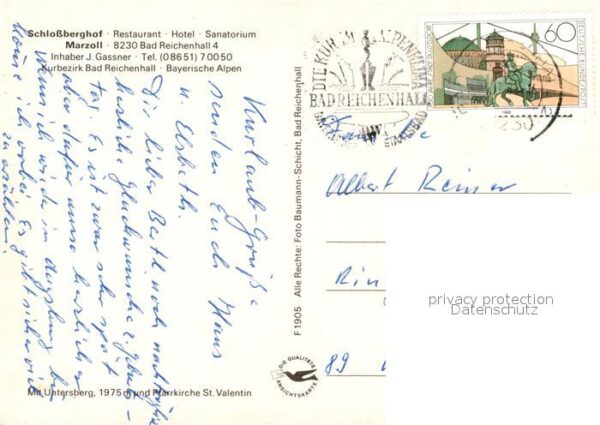 Schloßberghof · Restaurant · Hotel · Sanatorium
Marzoll · 8230 Bad Reichenhall 4
Inhaber J. Gassner · Tel. (08651) 70050
Kurbezirk Bad Reichenhall · Bayerische Alpen
Kurlaub-Grüße
senden Euch Hans
u. Elsbeth.
Dir lieber Berth noch nachträglich
herzliche Glückwünsche z. Geburts-
tag. Es ist zwar sehr spät
aber dafür umso herzlicher
Wenn ich wieder in Augsburg bin
komme ich vorbei. Es gibt sicher viel
zu erzählen.
Mit Untersberg, 1975 m und Pfarrkirche St. Valentin
F 1905 Alle Rechte: Foto Baumann-Schicht, Bad Reichenhall
DIE QUALITÄTS
ANSICHTSKARTE
DIE KUR IM ALPENKLIMA
BAD REICHENHALL
60
DEUTSCHE BUNDESPOST
Albert Reiner
privacy protection
Datenschutz
89